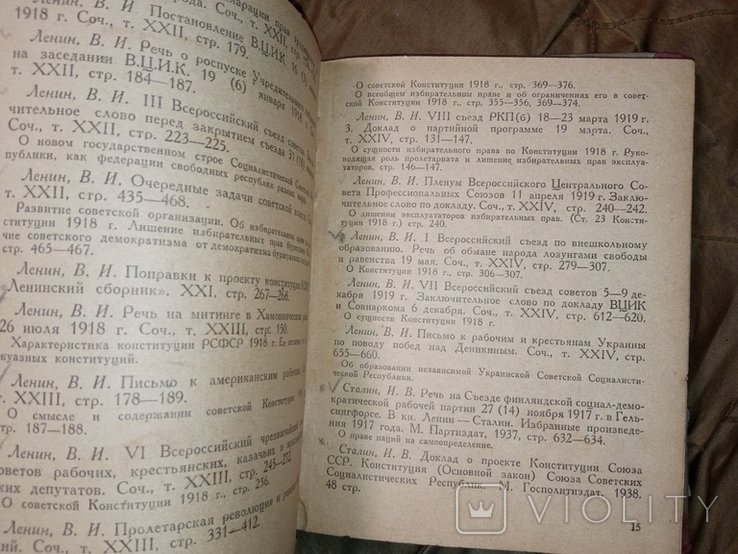 1918 г. Соч., т. XXII, стр. 179.
Ленин, В. И. Постановление ВЦИК
Ленин, В. И. Речь о роспуске Учредительного
на заседании В.Ц.И.К. 19 (6) января
т. XXII, стр. 184—187.
Ленин, В. И. III Всероссийский съезд советов
чительное слово перед закрытием съезда 31 (18)
т. XXII, стр. 223—225.
О новом государственном строе Социалистической
публики, как федерации свободных республик разных наций.
Ленин, В. И. Очередные задачи советской власти.
т. XXII, стр. 435—468.
Развитие советской организации. Об избирательном праве
ституции 1918 г. Лишение избирательных прав буржуазии
чие советского демократизма от демократизма буржуазного
стр. 465—467.
Ленин, В. И. Поправки к проекту конституции
«Ленинский сборник». XXI, стр. 267—268.
Ленин, В. И. Речь на митинге в Хамовническом
26 июля 1918 г. Соч., т. XXIII, стр. 150.
Характеристика конституции РСФСР 1918 г. Ее отличие
жуазных конституций.
Ленин, В. И. Письмо к американским рабочим
т. XXIII, стр. 178—189.
О смысле и содержании советской Конституции
стр. 187—188.
Ленин, В. И. VI Всероссийский чрезвычайный
советов рабочих, крестьянских, казачьих и
ких депутатов. Соч., т. XXIII, стр. 245—272.
О советской Конституции 1918 г., стр. 256.
Ленин, В. И. Пролетарская революция и
Соч., т. XXIII, стр. 331—412.
О советской Конституции 1918 г., стр. 369—376.
О всеобщем избирательном праве и об ограничениях его в совет-
ской Конституции 1918 г., стр. 355—356, 369—374.
Ленин, В. И. VIII съезд РКП(б) 18—23 марта 1919 г.
3. Доклад о партийной программе 19 марта. Соч.,
т. XXIV, стр. 131—147.
О сущности избирательного права по Конституции 1918 г. Руко-
водящая роль пролетариата и лишение избирательных прав эксплуа-
таторов. стр. 146—147.
Ленин, В. И. Пленум Всероссийского Центрального Со-
вета Профессиональных Союзов 11 апреля 1919 г. Заклю-
чительное слово по докладу. Соч., т. XXIV, стр. 240—242.
О лишении эксплуататоров избирательных прав. (Ст. 23 Консти-
туции 1918 г.) стр. 240.
Ленин, В. И. I Всероссийский съезд по внешкольному
образованию. Речь об обмане народа лозунгами свободы
и равенства 19 мая. Соч., т. XXIV, стр. 279—307.
О Конституции 1918 г., стр. 306—307.
Ленин, В. И. VII Всероссийский съезд советов 5—9 де-
кабря 1919 г. Заключительное слово по докладу ВЦИК
и Совнаркома 6 декабря. Соч., т. XXIV, стр. 612—620.
О сущности Конституции 1918 г.
Ленин, В. И. Письмо к рабочим и крестьянам Украины
по поводу побед над Деникиным. Соч., т. XXIV, стр.
655—660.
Об образовании независимой Украинской Советской Социалисти-
ческой Республики.
Сталин, И. В. Речь на Съезде финляндской социал-демо-
кратической рабочей партии 27 (14) ноября 1917 г. в Гель-
сингфорсе. В кн. Ленин—Сталин. Избранные произведе-
ния 1917 года. М. Партиздат, 1937, стр. 632—634.
О праве наций на самоопределение.
Сталин, И. В. Доклад о проекте Конституции Союза
ССР. Конституция (Основной закон) Союза Советских
Социалистических Республик. М. Госполитиздат. 1938.
48 стр.
15
VIOLITY